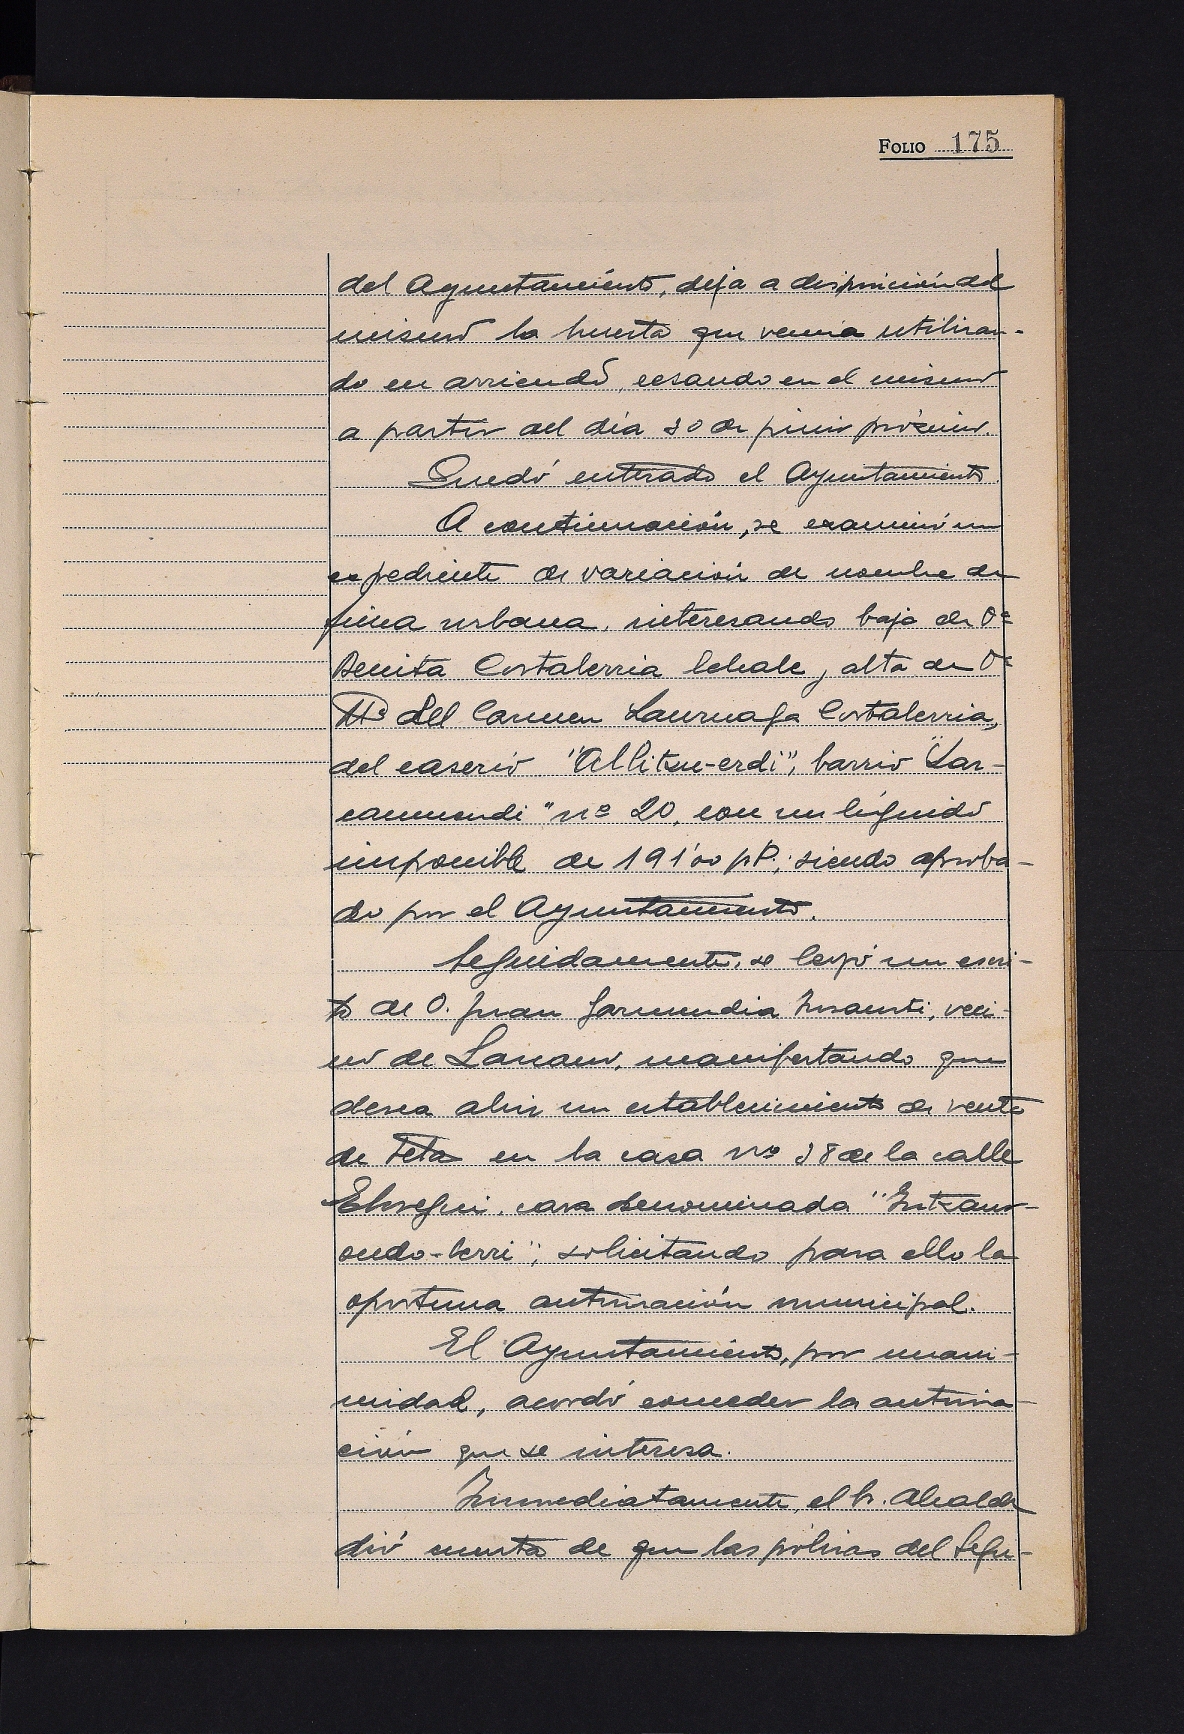 FOLIO 175
del Ayuntamiento, deja a disposición del
mismo la huerta que venia utilizan-
do en arriendo, cesando en el mismo
a partir del día 30 de junio próximo.
Quedó enterado el Ayuntamiento.
A continuación, se examinó un
expediente de variación de nombre de
finca urbana, interesando baja de Dª
Benita Costalerria Lebale, alta de Dª
Mª del Carmen Laurnaga Costalerria,
del caserio "Allitzu-erdi", barrio "Lar-
caumendi" nº 20, con un líquido
imponible de 191'00 pts.; siendo aproba-
do por el Ayuntamiento.
Seguidamente, se leyó un escri-
to de D. Juan Garmendia, veci-
no de Lazcano, manifestando que
desea abrir un establecimiento de venta
de en la casa nº 38 de la calle
Elosegui, casa denominada
ondo-berri", solicitando para ello la
oportuna autorización municipal.
El Ayuntamiento, por unani-
midad, acordó conceder la autoriza-
ción que se interesa.
Inmediatamente, el Sr. Alcalde
dió cuenta de que las pólizas del Segu-